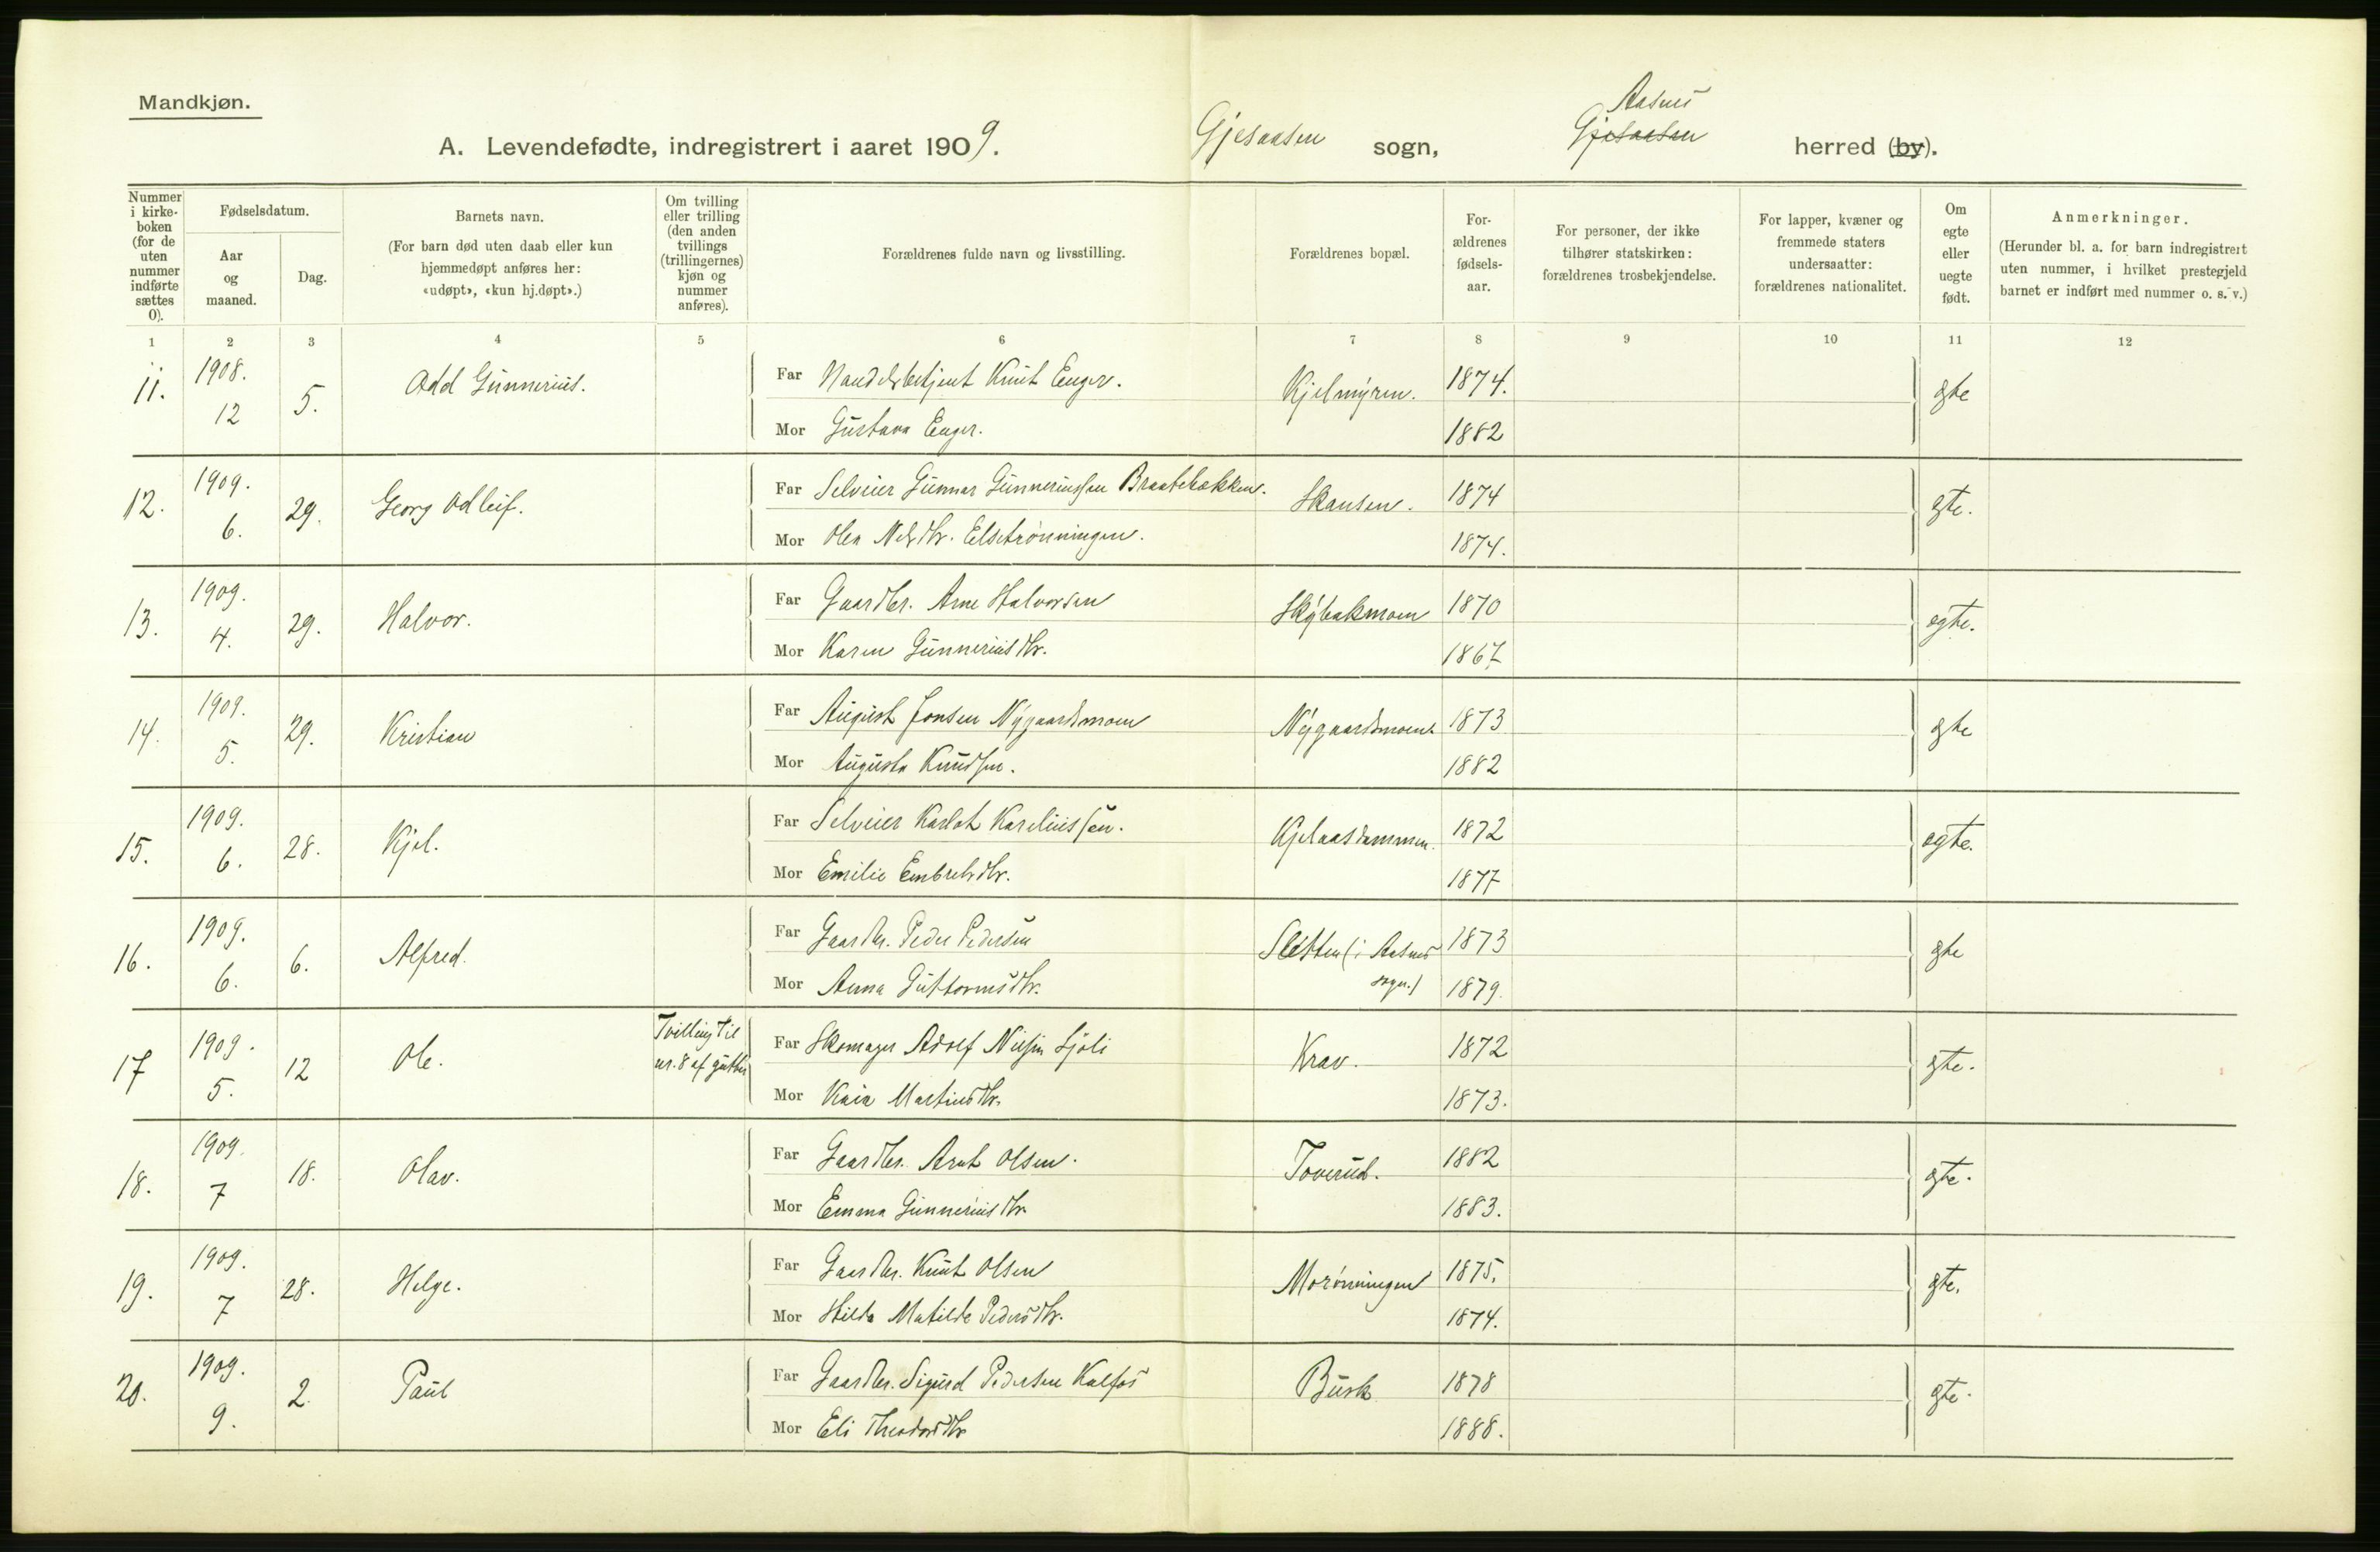 Mandkjøn.
A. Levendefødte, indregistrert i aaret 1909. Gjesaasen sogn, Gjesaasen Aasnes herred (by).
Nummer i kirke-boken (for de uten nummer indførte sættes 0).
Fødselsdatum.
Aar og maaned.
Dag.
Barnets navn.
(For barn død uten daab eller kun hjemmedøpt anføres her: «udøpt», «kun hj.døpt».)
Om tvilling eller trilling (den anden tvillings (trillingernes) kjøn og nummer anføres).
Forældrenes fulde navn og livsstilling.
Forældrenes bopæl.
For-ældrenes fødsels-aar.
For personer, der ikke tilhører statskirken: forældrenes trosbekjendelse.
For lapper, kvæner og fremmede staters undersaatter: forældrenes nationalitet.
Om egte eller uegte født.
Anmerkninger.
(Herunder bl. a. for barn indregistrert uten nummer, i hvilket prestegjeld barnet er indført med nummer o. s. v.)
1 2 3 4 5 6 7 8 9 10 11 12
11. 1908. 12 5. Odd Gunnerius. Far Handelsbetjent Knut Enger. Kjelmyren. 1874. egte
Mor Gustava Enger. 1882
12. 1909. 6. 29. Georg Odleif. Far Selveier Gunnar Gunneriussen Braatebakken. Skansen. 1874 egte.
Mor Olea Nilsdtr. Elsetrønningen. 1874.
13. 1909. 4. 29. Halvor. Far Gaardbr. Arne Halvorsen Skybakmoen 1870 egte.
Mor Karen Gunneriusdtr. 1867
14. 1909. 5. 29. Kristian Far August Jonsen Nygaardsmoen Nygaardsmoen. 1873 egte
Mor Augusta Knudsen. 1882
15. 1909. 6. 28. Kjel. Far Selveier Karlot Kareliussen. Kjelaasdammen. 1872 egte.
Mor Emilie Embretsdtr. 1877
16. 1909. 6. 6. Alfred. Far Gaardbr. Peder Pedersen Sletten (i Aasnes sogn.) 1873 egte
Mor Anna Guttormsdtr. 1879.
17 1909. 5. 12 Ole. Tvilling til nr. 8 af gutter Far Skomager Adolf Nilsen Sjøli Krav. 1872 egte.
Mor Kaia Martinsdtr. 1873.
18. 1909. 7 18. Olav. Far Gaardbr. Arnt Olsen. Toverud. 1882 egte.
Mor Emma Gunneriusdtr. 1883.
19. 1909. 7 28. Helge. Far Gaardbr. Knut Olsen Morønningen 1875. egte.
Mor Hilda Matilde Pedersdtr. 1874.
20. 1909. 9. 2. Paul Far Gaardbr. Sigurd Pedersen Kalfos Busk 1878 egte.
Mor Eli Theodorsdtr 1888.